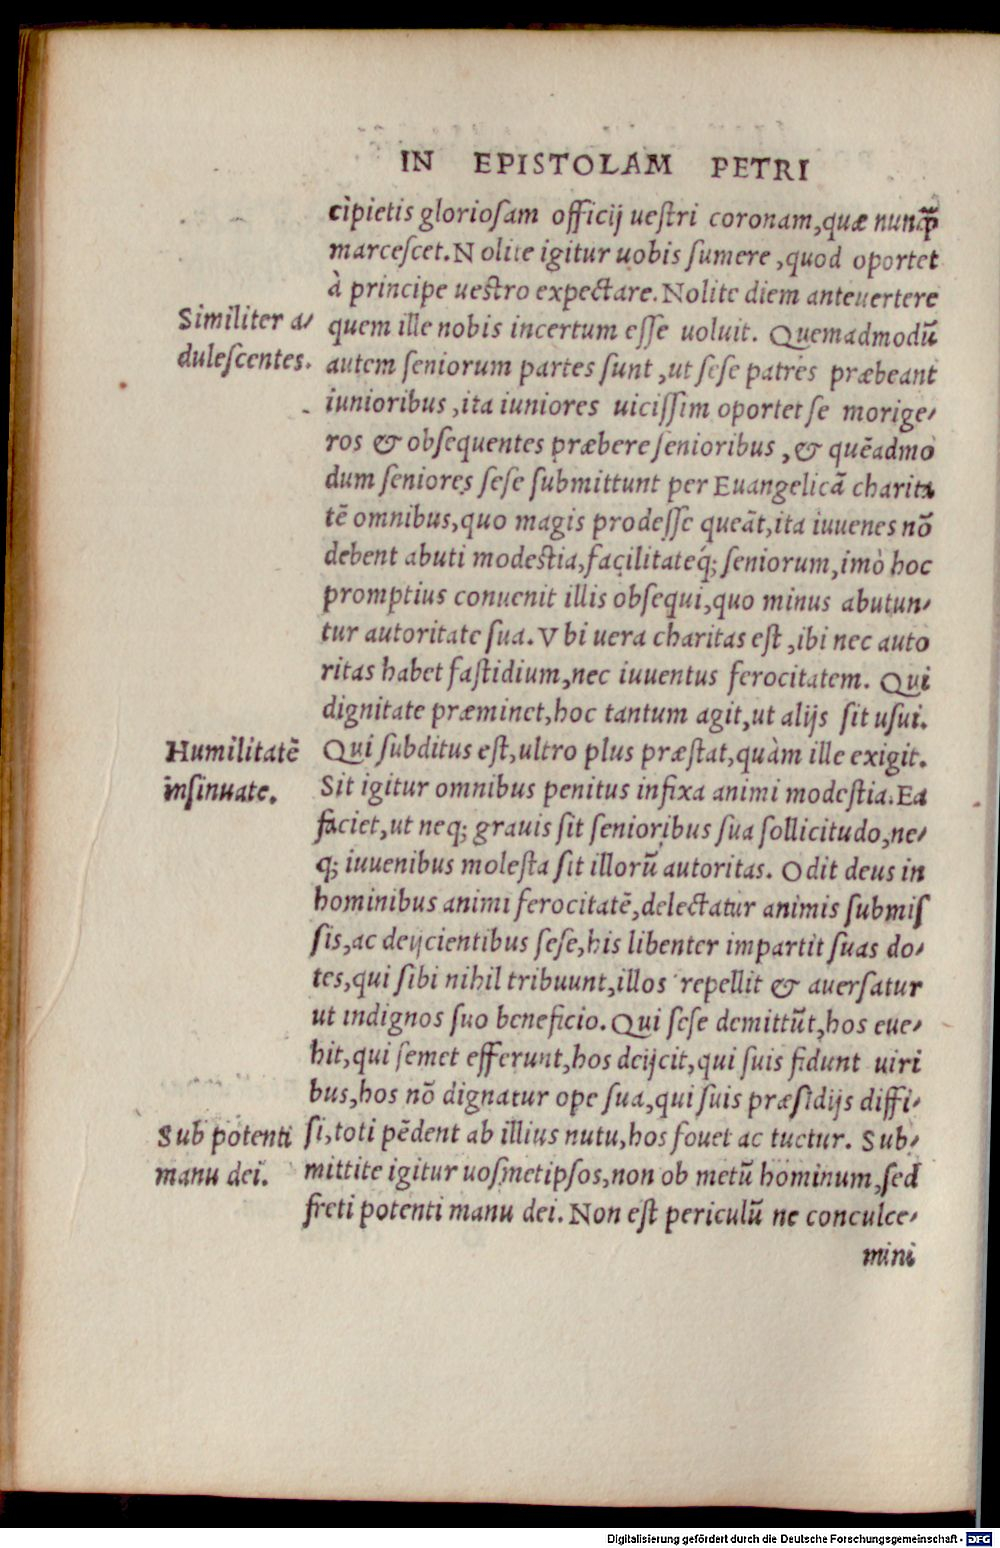 IN EPISTOLAM PETRI
cipietis gloriosam officij uestri coronam, quæ nunq̃
marcescet. Nolite igitur uobis sumere, quod oportet
à principe uestro expectare. Nolite diem anteuertere
Similiter a-
dulescentes.
quem ille nobis incertum esse uoluit. Quemadmodũ
autem seniorum partes sunt, ut sese patres præbeant
iunioribus, ita iuniores uicissim oportet se morige-
ros & obsequentes præbere senioribus, & quẽadmo
dum seniores sese submittunt per Euangelicã charita
tẽ omnibus, quo magis prodesse queãt, ita iuuenes nõ
debent abuti modestia, facilitateq́; seniorum, imò hoc
promptius conuenit illis obsequi, quo minus abutun-
tur autoritate sua. Vbi uera charitas est, ibi nec auto
ritas habet fastidium, nec iuuentus ferocitatem. Qui
dignitate præminet, hoc tantum agit, ut alijs sit usui.
Humilitatẽ
insinuate.
Qui subditus est, ultro plus præstat, quàm ille exigit.
Sit igitur omnibus penitus infixa animi modestia. Ea
faciet, ut neq; grauis sit senioribus sua sollicitudo, ne-
q; iuuenibus molesta sit illorũ autoritas. Odit deus in
hominibus animi ferocitatẽ, delectatur animis submis
sis, ac deijcientibus sese, his libenter impartit suas do-
tes, qui sibi nihil tribuunt, illos repellit & auersatur
ut indignos suo beneficio. Qui sese demittũt, hos eue-
hit, qui semet efferunt, hos deijcit, qui suis fidunt uiri
bus, hos nõ dignatur ope sua, qui suis præsidijs diffi-
Sub potenti
manu dei.
si, toti pẽdent ab illius nutu, hos fouet ac tuetur. Sub-
mittite igitur uosmetipsos, non ob metũ hominum, sed
freti potenti manu dei. Non est periculũ ne conculce-
mini
Digitalisierung gefördert durch die Deutsche Forschungsgemeinschaft - DFG